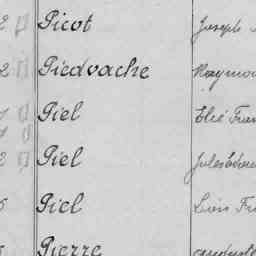 2 Picot Joseph
2 Piedvache Raymon
7 Piel Elie Fran
2 Piel Jules Edoua
5 Piel Louis Fr
Pierre